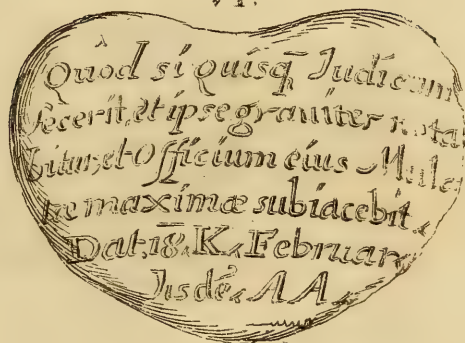 VI.
Quòd si quisq̄ Iudicum
fecerit, et ipse grauiter nota
bitur, et Officium eius Mulc
tæ maximæ subiacebit.
Dat. 18. K. Februar.
Iisdē. AA.